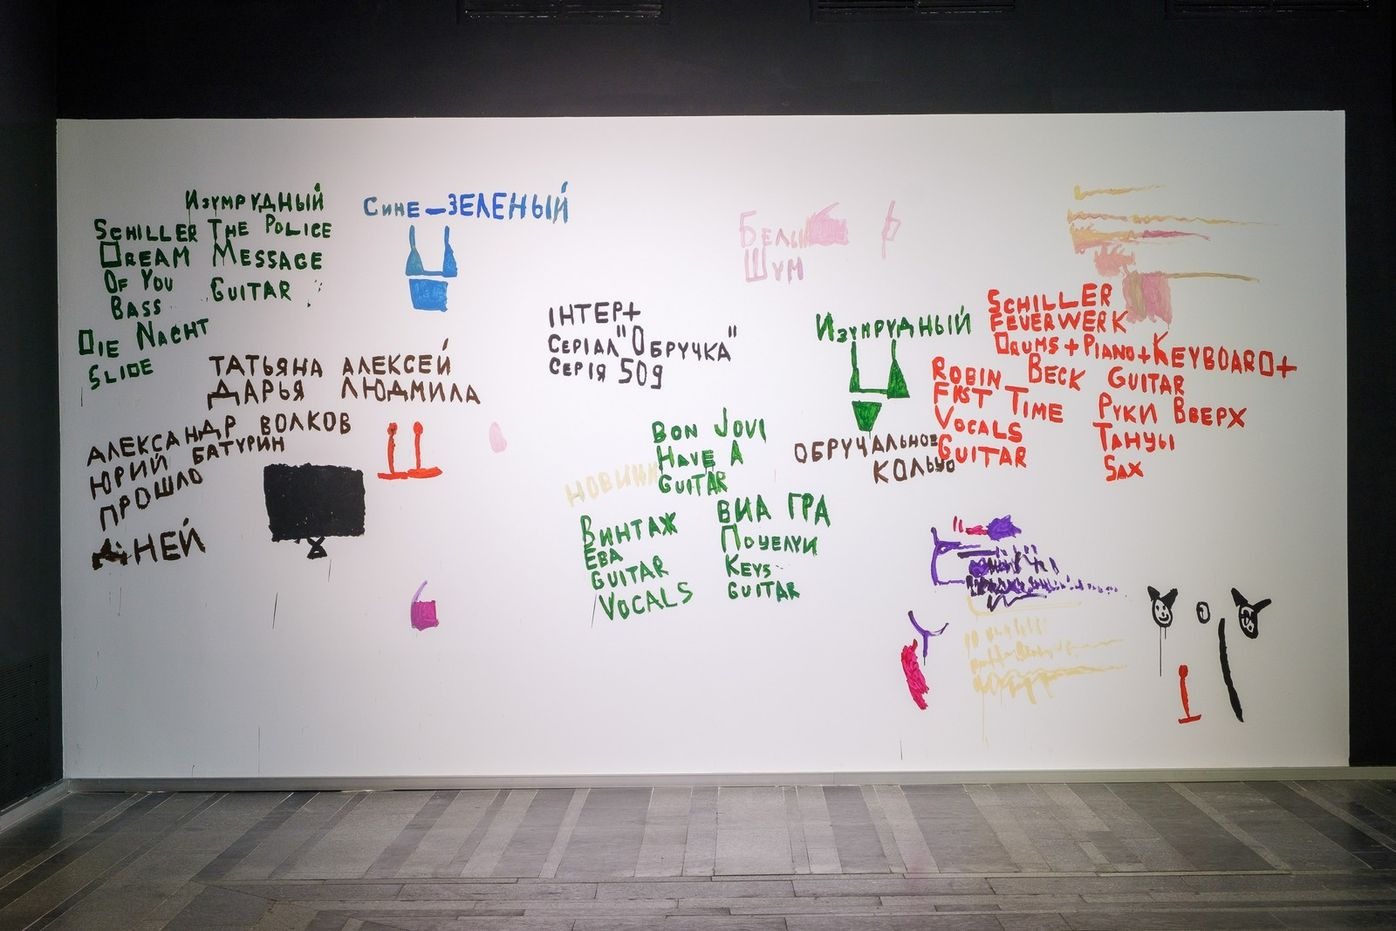 Изумрудный
Schiller
Dream
Of You
Bass
The Police
Message
Guitar
Die Nacht
Slide
Сине-зеленый
Татьяна Алексей
Дарья Людмила
Александр Волков
Юрий Батурин
Прошло
дней
Інтер+
Серіал "Обручка"
Серія 509
Белы
Шум
Изумрудный
Обручальное
кольцо
Bon Jovi
Have A
Guitar
Новинки
Винтаж
Ева
Guitar
Vocals
ВИА ГРА
Поцелуи
Keys
Guitar
Schiller
Feuerwerk
Drums+Piano+Keyboard+
Guitar
Robin Beck
First Time
Vocals
Guitar
Руки Вверх
Танцы
Sax